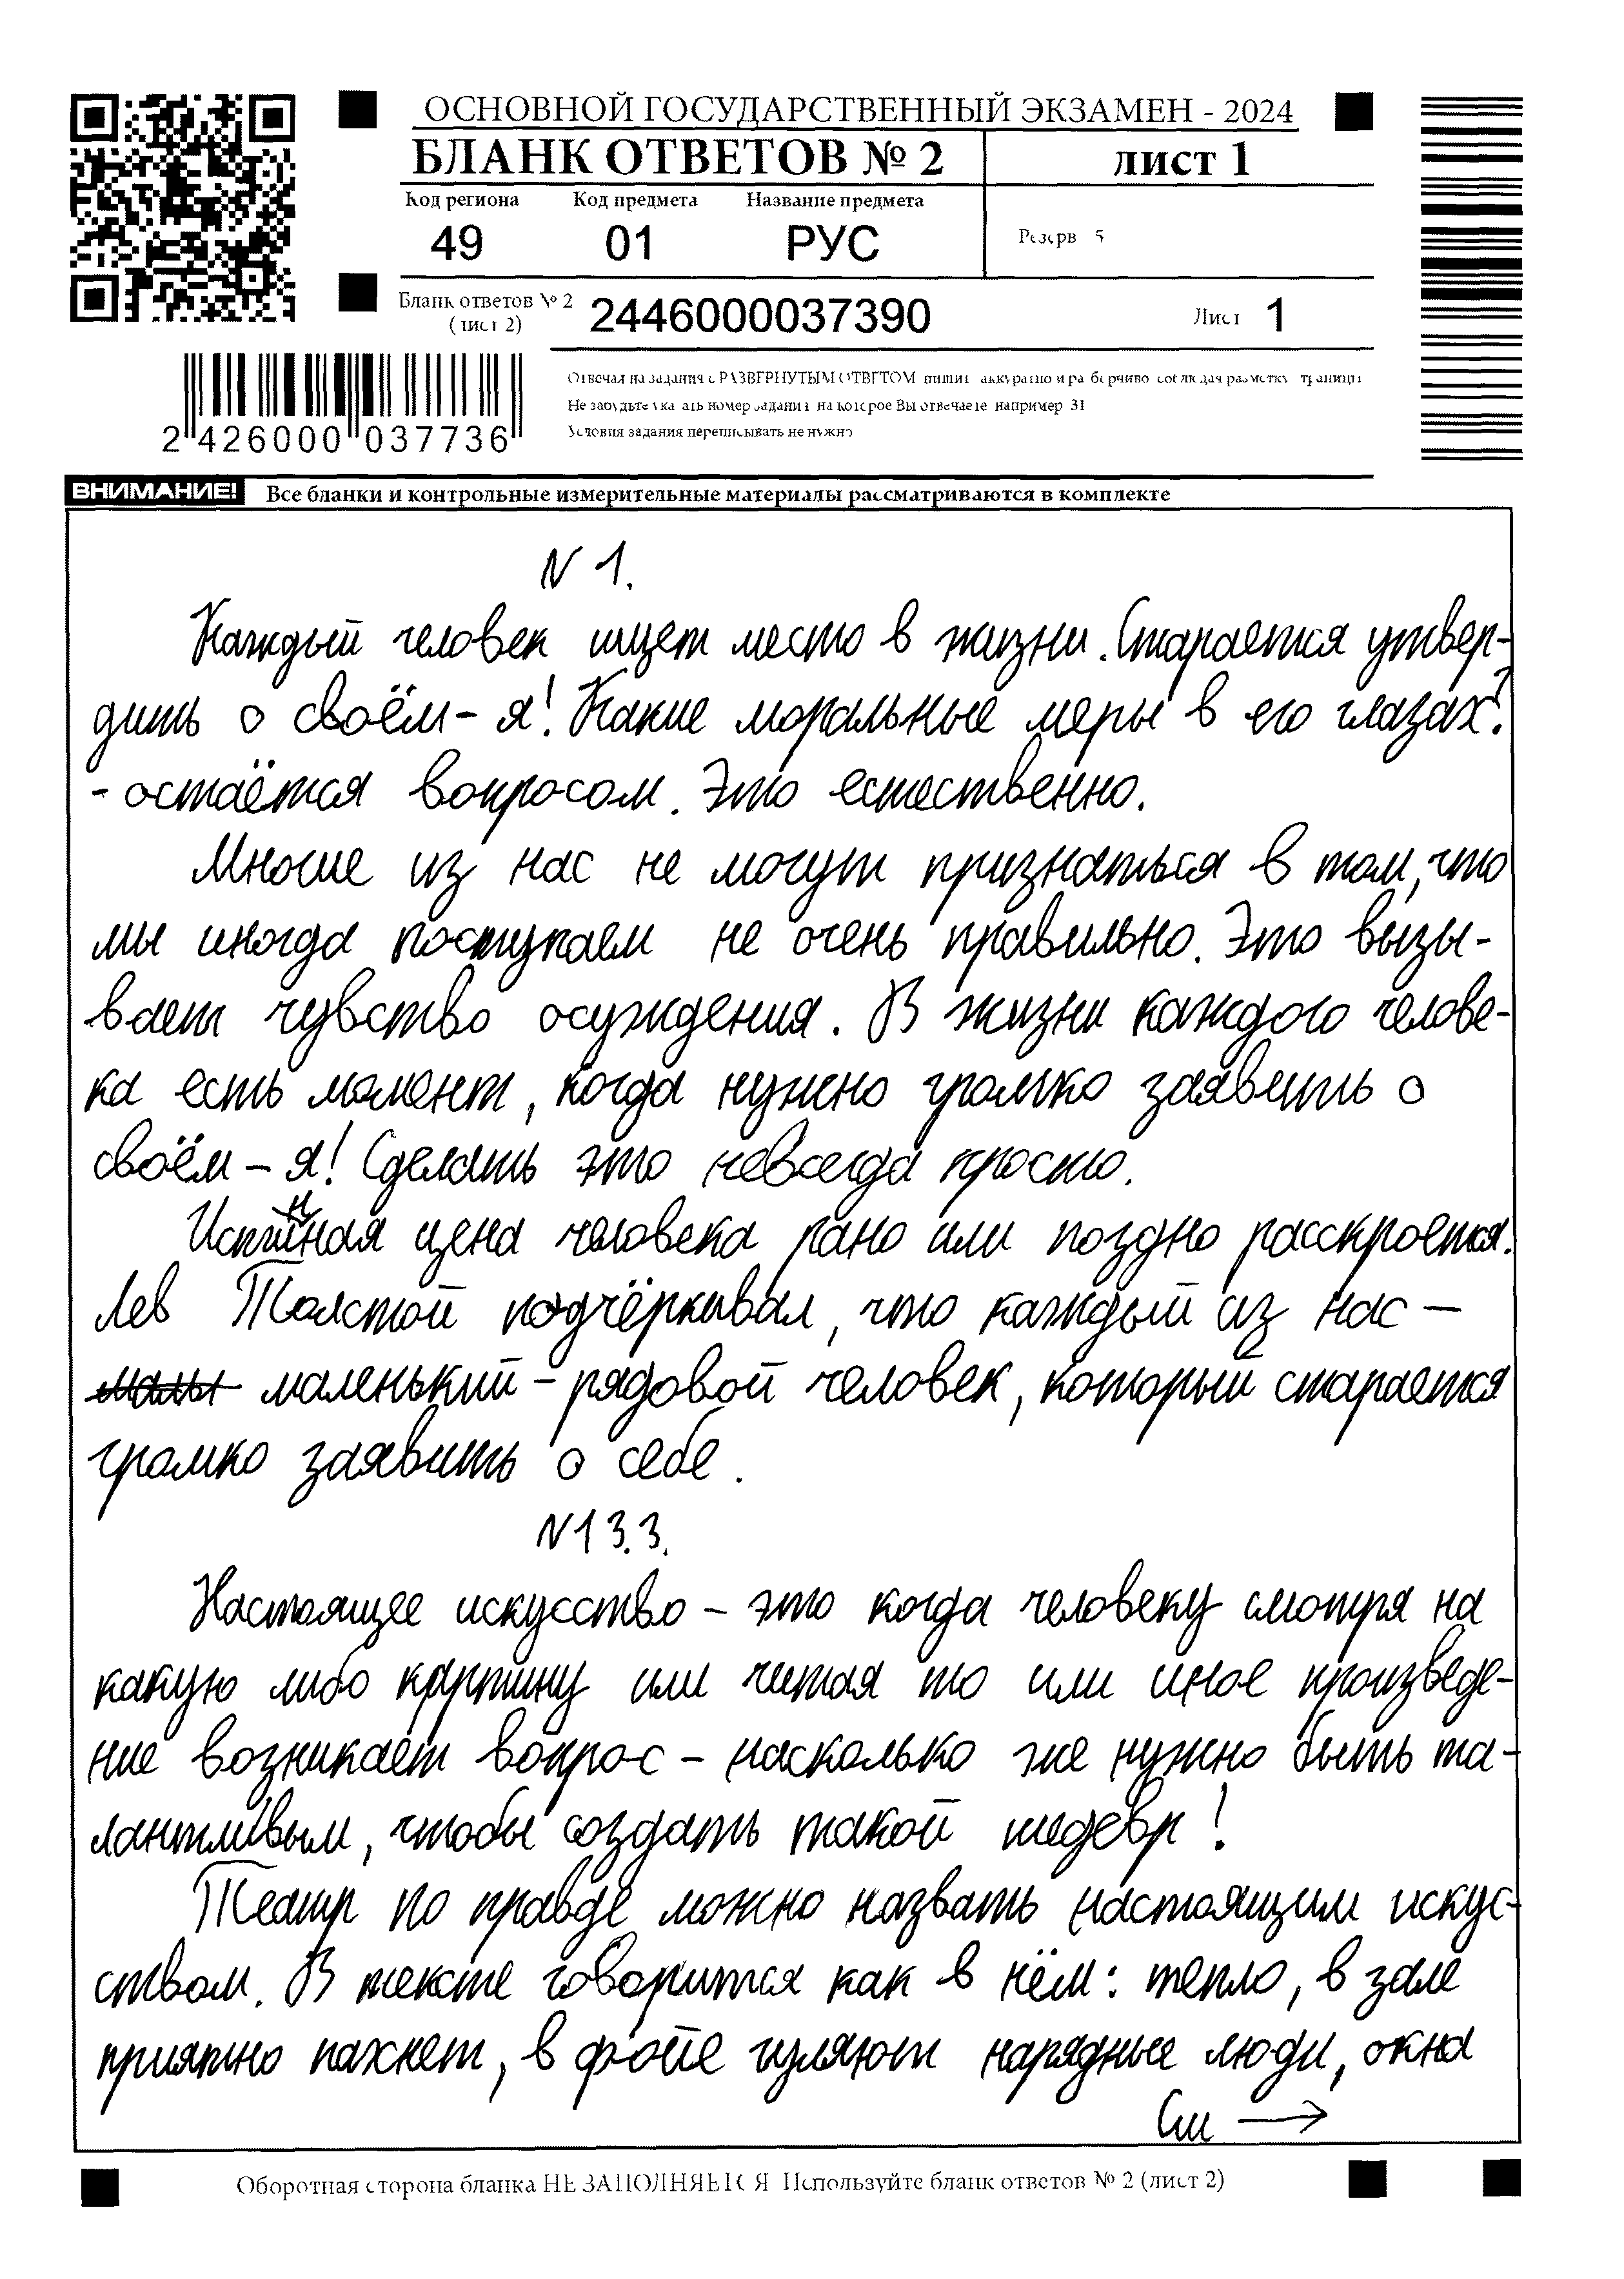 ОСНОВНОЙ ГОСУДАРСТВЕННЫЙ ЭКЗАМЕН - 2024
БЛАНК ОТВЕТОВ № 2
лист 1
Код региона Код предмета Название предмета
49 01 РУС
Резерв 5
Бланк ответов № 2
(лист 2)
2446000037390
Лист 1
2 426000 037736
Отвечая на задания с РАЗВЕРНУТЫМ ОТВЕТОМ пишите аккуратно и разборчиво соблюдая разметку страницы
Не забудьте указать номер задания на которое Вы отвечаете например 31
Условия задания переписывать не нужно
ВНИМАНИЕ! Все бланки и контрольные измерительные материалы рассматриваются в комплекте
N 1.
Каждый человек ищет место в жизни. Старается утвер-
дить о своём - я! Какие моральные меры в его глазах?
- остаётся вопросом. Это естественно.
Многие из нас не могут признаться в том, что
мы иногда поступаем не очень правильно. Это вызы-
вает чувство осуждения. В жизни каждого челове-
ка есть момент, когда нужно громко заявить о
своём - я! Сделать это невсегда просто.
Истиная цена человека рано или поздно расскроется.
Лев Толстой подчёркивал, что каждый из нас —
маленький - рядовой человек, который старается
громко заявить о себе.
N 13.3.
Настоящее искусство - это когда человеку смотря на
какую либо картину или читая то или иное произведе-
ние возникает вопрос - насколько же нужно быть та-
лантливым, чтобы создать такой шедевр!
Театр по правде можно назвать настоящим искус-
ством. В тексте говорится как в нём: тепло, в зале
приятно пахнет, в фойе гуляют нарядные люди, окна
См →
Оборотная сторона бланка НЕ ЗАПОЛНЯЕТСЯ Используйте бланк ответов № 2 (лист 2)